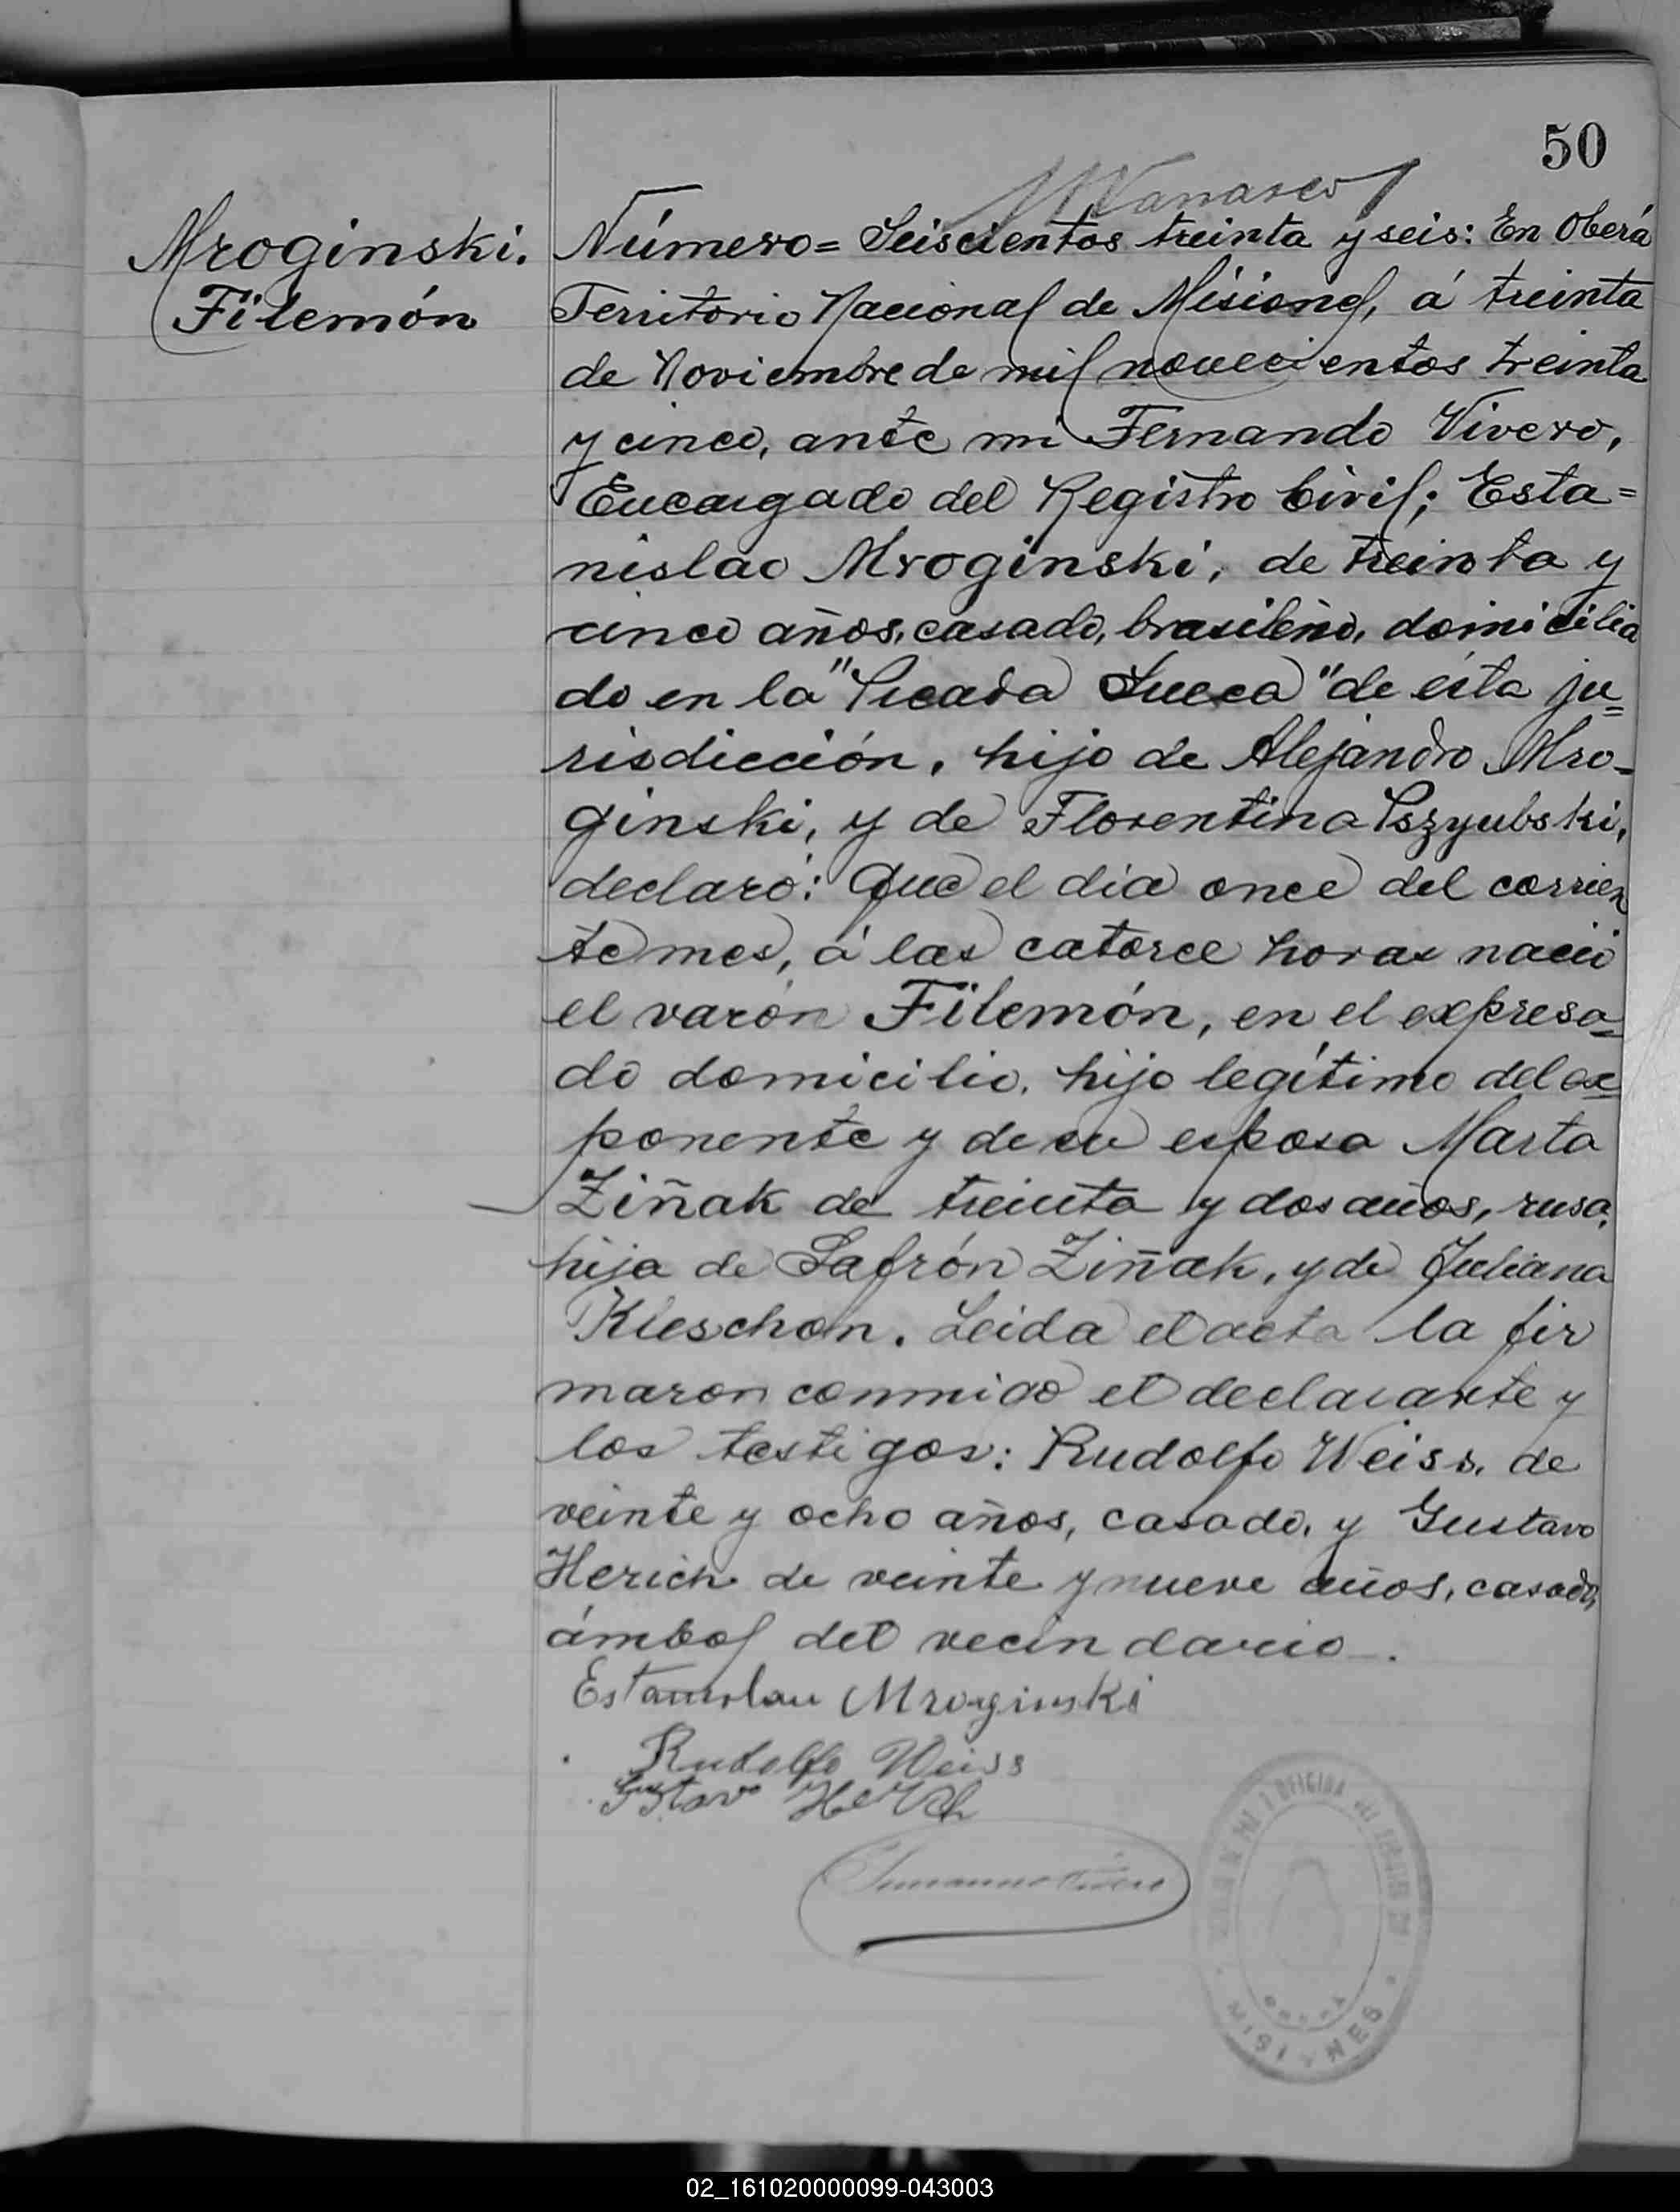 50
Mroginski.
Filemón
Número = Seiscientos treinta y seis: En Oberá
Territorio Nacional de Misiones, á treinta
de Noviembre de mil novecientos treinta
y cinco, ante mi Fernando Vivero,
Encargado del Registro Civil; Esta=
nislao Mroginski, de treinta y
cinco años, casado, brasileño, domicilia
do en la "Picada Sueca" de ésta ju=
risdicción, hijo de Alejandro Mro-
ginski, y de Florentina Pszyubski,
declaró: Que el dia once del corrien
te mes, á las catorce horas nació
el varón Filemón, en el expresa=
do domicilio, hijo legítimo del ex=
ponente y de su esposa Marta
Ziñak de treinta y dos años, rusa,
hija de Safrón Ziñak, y de Juliana
Kleschon. Leida el acta la fir
maron conmigo el declarante y
los testigos: Rudolfo Weiss, de
veinte y ocho años, casado, y Gustavo
Herich de veinte y nueve años, casado,
ámbos del vecindario.
Estanislau Mroginski
Rudolfo Weiss
Gustavo Herich
OFICINA
MISIONES
02_161020000099-043003